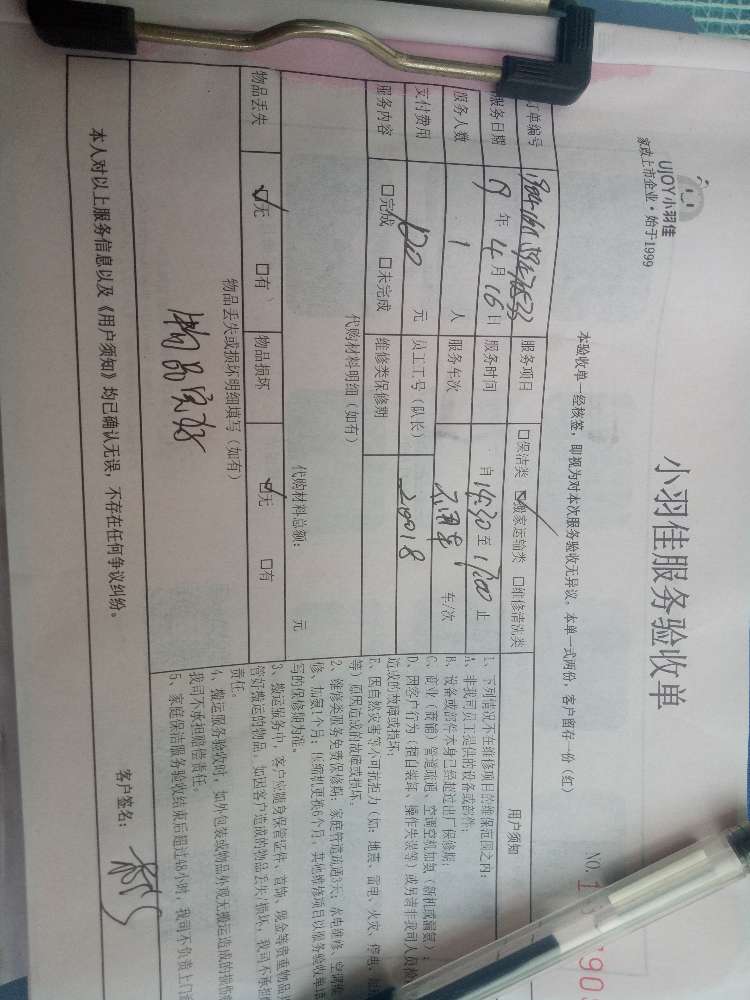 UJOY小羽佳
家政上市企业·始于1999
小羽佳服务验收单
NO.
本验收单一经核签，即视为对本次服务验收无异议。本单一式两份，客户留存一份（红）
订单编号
服务项目 □保洁类 □搬家运输类 □维修清洗类
服务日期 19年4月16日 服务时间 自14:30至17:00止
服务人数 1人 服务车次 不用车 车/次
支付费用 120元 员工工号（队长） 20018
服务内容 □完成 □未完成 维修类保修期
代购材料明细（如有）
代购材料总额： 元
物品丢失 □无 □有 物品损坏 □无 □有
物品丢失或损坏明细填写（如有）
物品完好
用户须知
1、下列情况不在维修项目的维保范围之内：
A、非我司员工提供的设备或部件；
B、设备或部件本身已经超过出厂保修期；
C、商业（商铺）管道疏通、空调空机加氨（新机或漏氨）；
D、因客户行为（擅自装卸、操作失误等）或另请非我司人员
造成的故障或损坏；
E、因自然灾害等不可抗拒力（如：地震、雷电、火灾、停电、
等）而因造成的故障或损坏。
2、维修类服务免费保修期：家庭管道疏通3天；水电维修、空调
修、加氨1个月；压缩机更换6个月，其他维修项目以服务验收单
写的保修期为准。
3、搬运服务中，客户应随身保管证件、首饰、现金等贵重物品
管好搬运的物品，如因客户造成的物品丢失/损坏，我司不承担
责任。
4、搬运服务验收时，如外包装或物品外观无搬运造成的损伤
我司不承担赔偿责任。
5、家庭保洁服务验收结束后超过48小时，我司不负责上门
本人对以上服务信息以及《用户须知》均已确认无误，不存在任何争议纠纷。
客户签名：